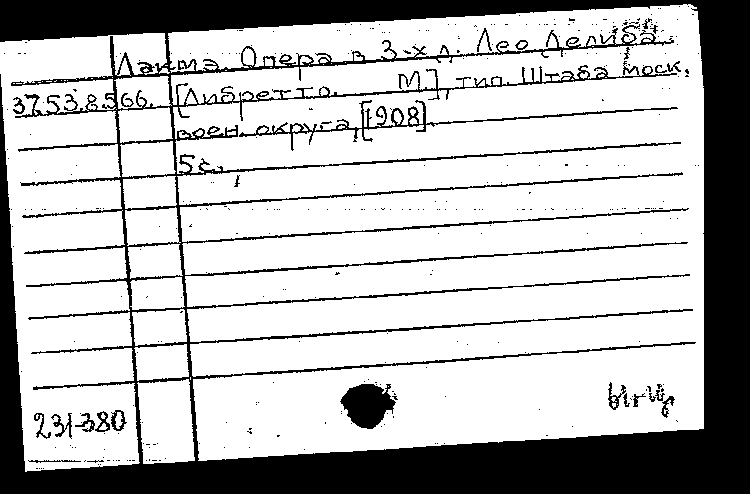 Лакма. Опера в 3-х д. Лео Делиба.
37.53.8.566. [Либретто. М.], тип. Штаба Моск.
воен. округа, [1908].
5с.,
231-380